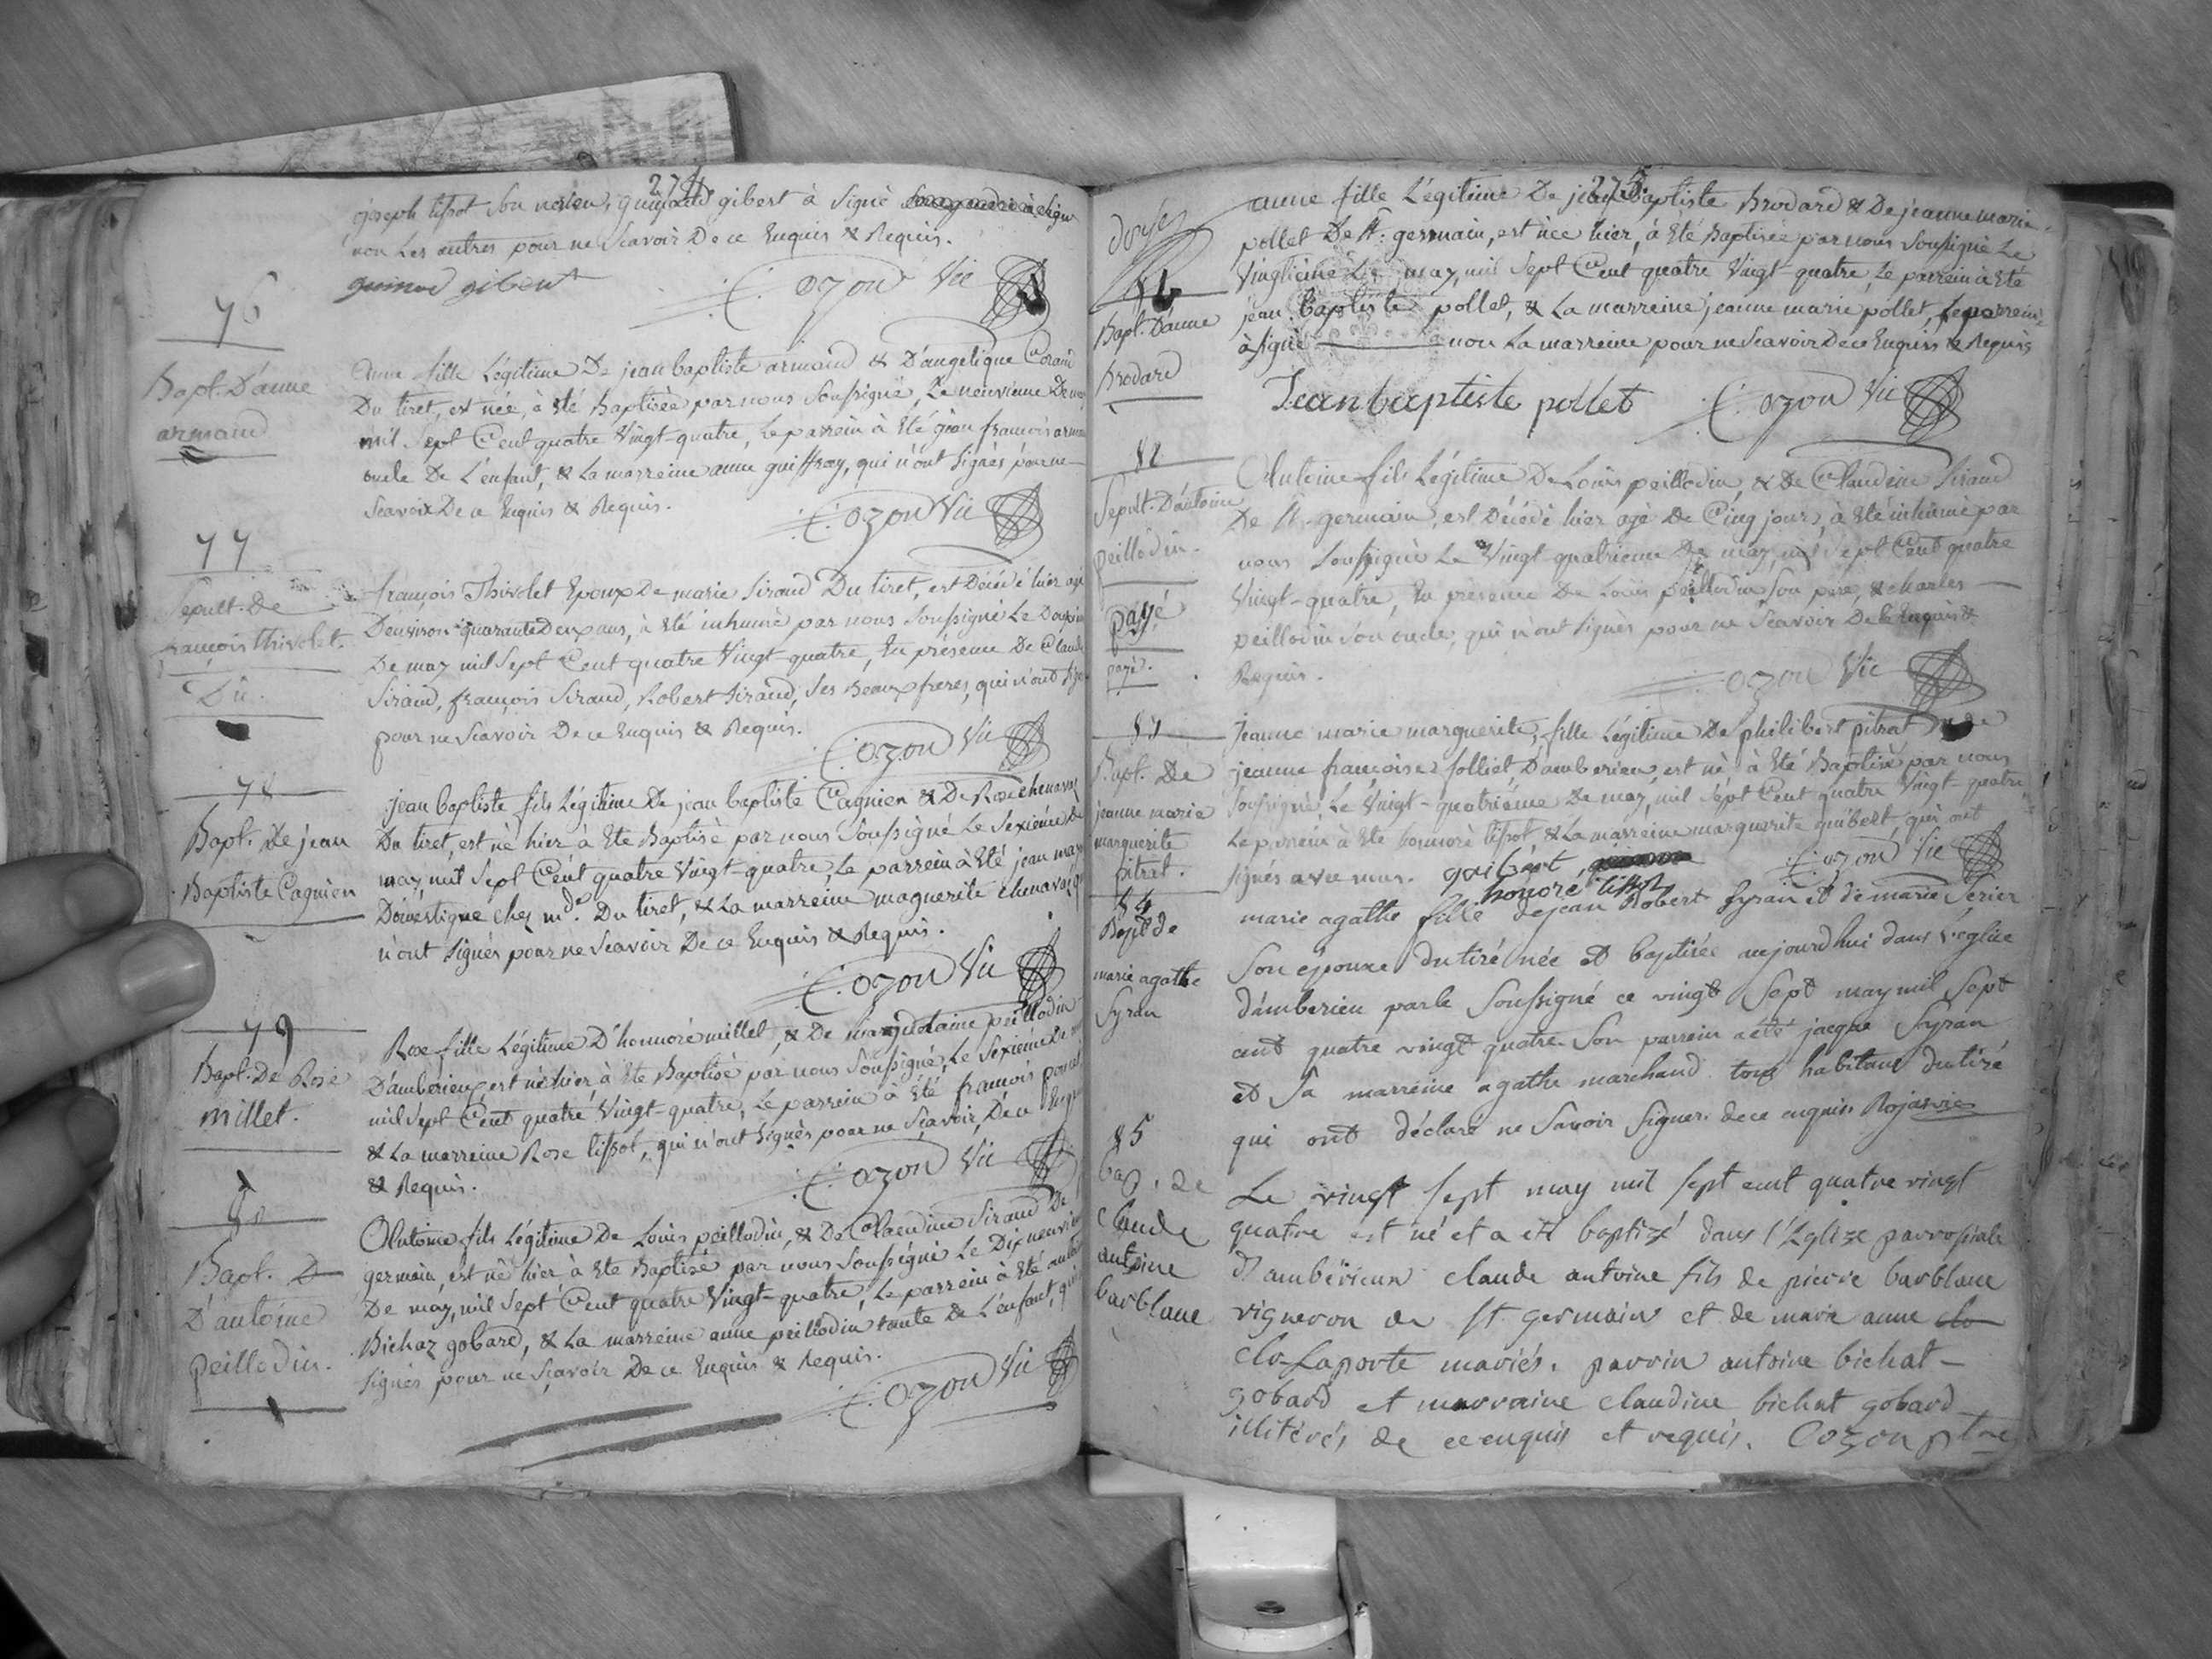 274.
joseph tissot son neveu, guinard gibert à signé
non les autres pour ne scavoir De ce Enquis & Requis.
guinard gibert C: ozon Vic
76
Bapt. D'anne
armand
Anne fille Légitime De jean baptiste armand & D'angelique Corand
Du tiret, est née, à Eté Baptisée par nous Soussigné, Le neuvieme De may
mil Sept Cent quatre Vingt-quatre, Le parrein à Eté jean francois arman
oncle De L'enfant, & La marreine anne guiffray, qui n'ont Signés pour ne
Scavoir De ce Enquis & Requis. C: ozon Vic
77
Sepult. De
francois thivolet.
Dû.
françois Thivolet Epoux De marie Siraud Du tiret, est Décédé hier agé
D'environ quarante Deux ans, à Eté inhumé par nous Soussigné Le Douzieme
De may mil Sept Cent quatre Vingt-quatre, En présence De Claude
Siraud, françois Siraud, Robert Siraud, Ses Beaux freres, qui n'ont Signés
pour ne Scavoir De ce Enquis & Requis. C: ozon Vic
78
Bapt. De jean
Baptiste Cagnien
jean baptiste fils Légitime De jean baptiste Cagnien & De Rose chenavaz
Du tiret, est né hier à Ete Baptisé par nous Soussigné Le Sexiéme De
may, mil Sept Cent quatre Vingt-quatre, Le parrein à Eté jean
Domestique chez md. Du tiret, & La marreine maguerite chenavaz, qui
n'ont Signés pour ne Scavoir De ce Enquis & Requis.
C: ozon Vic
79
Bapt. De Rose
millet.
Rose fille Légitime D'honnoré millet, & De peillodin
D'amberieux, est né hier, à Ete Baptisé par nous Soussigné, Le Sexiéme De
mil Sept Cent quatre Vingt-quatre, Le parrein à Eté francois poncet
& La marreine Rose tissot, qui n'ont Signés pour ne Scavoir, De ce Enquis
& Requis. C: ozon Vic
80
Bapt. D
D'antoine
Peillodin.
Antoine fils Légitime De Louis peillodin, & De Claudine Siraud De
germain, est né hier à Ete Baptisé par nous Soussigné Le Dix neuvieme
De may, mil Sept Cent quatre Vingt-quatre, Le parrein à Eté
Bichaz gobard, & La marreine anne peillodin tante de L'enfant, qui
Signés pour ne Sçavoir De ce Enquis & Requis.
C: ozon Vic
275.
81
Bapt. D'anne
Brodard
anne fille Légitime De jean Baptiste Brodard & De jeanne marie
pollet De St. germain, est née hier, à Eté Baptisée par nous Soussigné Le
Vingtieme may, mil Sept Cent quatre Vingt-quatre, Le parrein à Eté
jean Baptiste pollet, & La marreine jeanne marie pollet, Le parrein
à Signé non La marreine pour ne Scavoir De ce Enquis & Requis
Jean baptiste pollet C: ozon Vic
82
Sepult. D'antoine
peillodin.
payé
payé.
Antoine fils Légitime De Louis peillodin, & De Claudine Siraud
De St. germain, est Décédé hier agé De Cinq jours, à Eté inhumé par
nous Soussigné Le Vingt-quatrieme De may, mil Sept Cent quatre
Vingt-quatre, En présence De Louis peillodin Son pere, & charles
peillodin Son oncle, qui n'ont Signés pour ne Scavoir De ce Enquis &
Requis. C: ozon Vic
83
Bapt. De
jeanne marie
marguerite
pitrat.
Jeanne marie marguerite, fille Légitime De philibert pitrat & de
jeanne françoise folliet, D'amberieu, est né à Eté Baptisé par nous
Soussigné, Le Vingt-quatriéme De may, mil Sept Cent quatre Vingt-quatre
Le parrein à Ete honnoré tissot & La marreine marguerite guibert, qui ont
Signés avec nous. guibért, C: ozon Vic
honoré tissot
84
Bapt de
marie agathe
Syran
marie agathe fille de jean Robert Syran et de marie Serier
Son epouse du tiré née et baptisée aujourdhui dans l'eglise
d'amberieu par le Soussigné ce vingt Sept may mil Sept
cent quatre vingt quatre. Son parrein a été jacque Syran
et Sa marreine agathe marchand. tous habitans du tiré
qui ont déclaré ne Savoir Signer. de ce enquis Rojat vic
85
bap. de
claude
antoine
barblane
Le vingt sept may mil sept cent quatre vingt
quatre est né et a été baptizé dans l'Eglize parrossiale
d'ambérieux claude antoine fils de pierre barblane
vigneron de St germain et de marie anne clo
clo-Laporte mariés. parrin antoine bichat-
gobard et marraine claudine bichat gobard
illitérés de ce enquis et requis. Cozon ptre